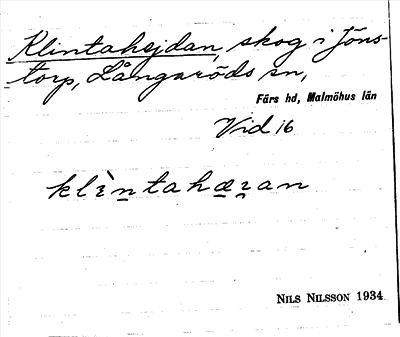 Klintahejdan, skog i Jöns-
torp, Långaröds sn,
Färs hd, Malmöhus län
Vid 16
klı̀n̲tahæ̲ı̯an
NILS NILSSON 1934